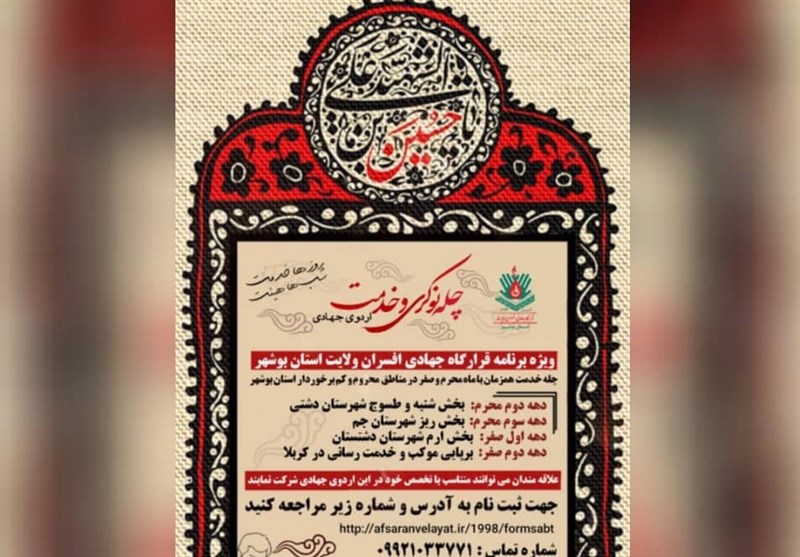 یا حسین بن علی الشهید
روزها خدمت
شب‌ها هیئت
چله نوکری و خدمت
اردوی جهادی
ویژه برنامه قرارگاه جهادی افسران ولایت استان بوشهر
چله خدمت همزمان با ماه محرم و صفر در مناطق محروم و کم برخوردار استان بوشهر
دهه دوم محرم: بخش شنبه و طسوج شهرستان دشتی
دهه سوم محرم: بخش ریز شهرستان جم
دهه اول صفر: بخش ارم شهرستان دشتستان
دهه دوم صفر: برپایی موکب و خدمت رسانی در کربلا
علاقه مندان می توانند متناسب با تخصص خود در این اردوی جهادی شرکت نمایند
جهت ثبت نام به آدرس و شماره زیر مراجعه کنید
http://afsaranvelayat.ir/1998/formsabt
شماره تماس : ۰۹۹۲۱۰۳۳۷۷۱